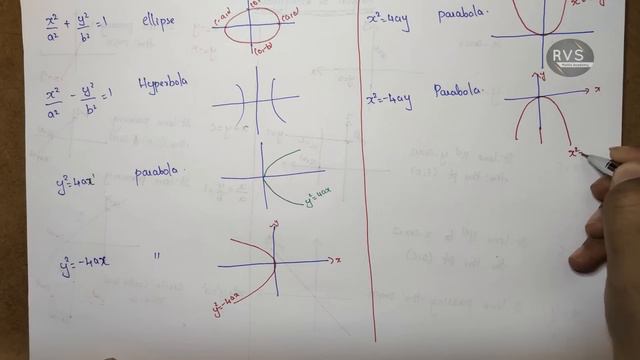 x²/a² + y²/b² = 1 ellipse
x²/a² - y²/b² = 1 Hyperbola
y²=4ax parabola
y²=4ax
y²=-4ax "
y
x
y²=-4ax
x²=4ay parabola.
x²=-4ay Parabola.
y
x
x²=
RVS
Maths Academy